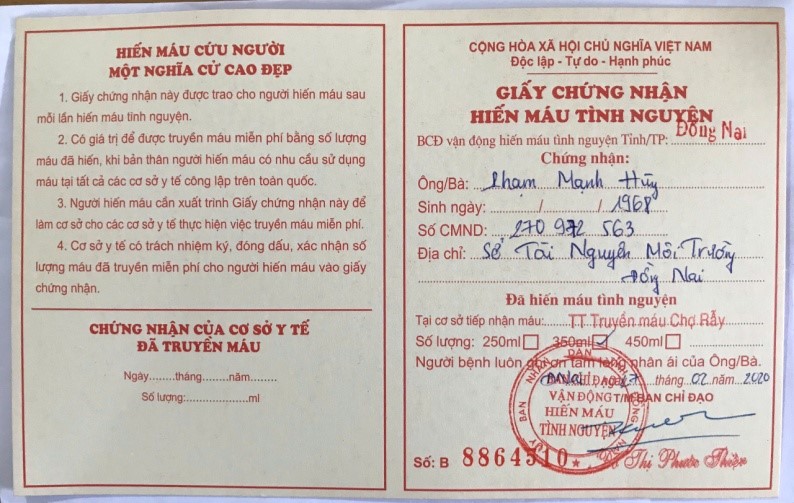 HIẾN MÁU CỨU NGƯỜI
MỘT NGHĨA CỬ CAO ĐẸP
1. Giấy chứng nhận này được trao cho người hiến máu sau
mỗi lần hiến máu tình nguyện.
2. Có giá trị để được truyền máu miễn phí bằng số lượng
máu đã hiến, khi bản thân người hiến máu có nhu cầu sử dụng
máu tại tất cả các cơ sở y tế công lập trên toàn quốc.
3. Người hiến máu cần xuất trình Giấy chứng nhận này để
làm cơ sở cho các cơ sở y tế thực hiện việc truyền máu miễn phí.
4. Cơ sở y tế có trách nhiệm ký, đóng dấu, xác nhận số
lượng máu đã truyền miễn phí cho người hiến máu vào giấy
chứng nhận.
CHỨNG NHẬN CỦA CƠ SỞ Y TẾ
ĐÃ TRUYỀN MÁU
Ngày........tháng........năm.........
Số lượng:...................ml
CỘNG HÒA XÃ HỘI CHỦ NGHĨA VIỆT NAM
Độc lập - Tự do - Hạnh phúc
GIẤY CHỨNG NHẬN
HIẾN MÁU TÌNH NGUYỆN
BCĐ vận động hiến máu tình nguyện Tỉnh/TP: Đồng Nai
Chứng nhận:
Ông/Bà: Phạm Mạnh Hùy
Sinh ngày: / / 1968
Số CMND: 270 972 563
Địa chỉ: Sở Tài Nguyên Môi Trường
Đồng Nai
Đã hiến máu tình nguyện
Tại cơ sở tiếp nhận máu: TT Truyền máu Chợ Rẫy
Số lượng: 250ml 350ml 450ml
Người bệnh luôn ghi ơn tấm lòng nhân ái của Ông/Bà.
27 tháng 02 năm 2020
T/M BAN CHỈ ĐẠO
BAN CHỈ ĐẠO
VẬN ĐỘNG
HIẾN MÁU
TÌNH NGUYỆN
Số: B 8864510
Thị Phước Thiện